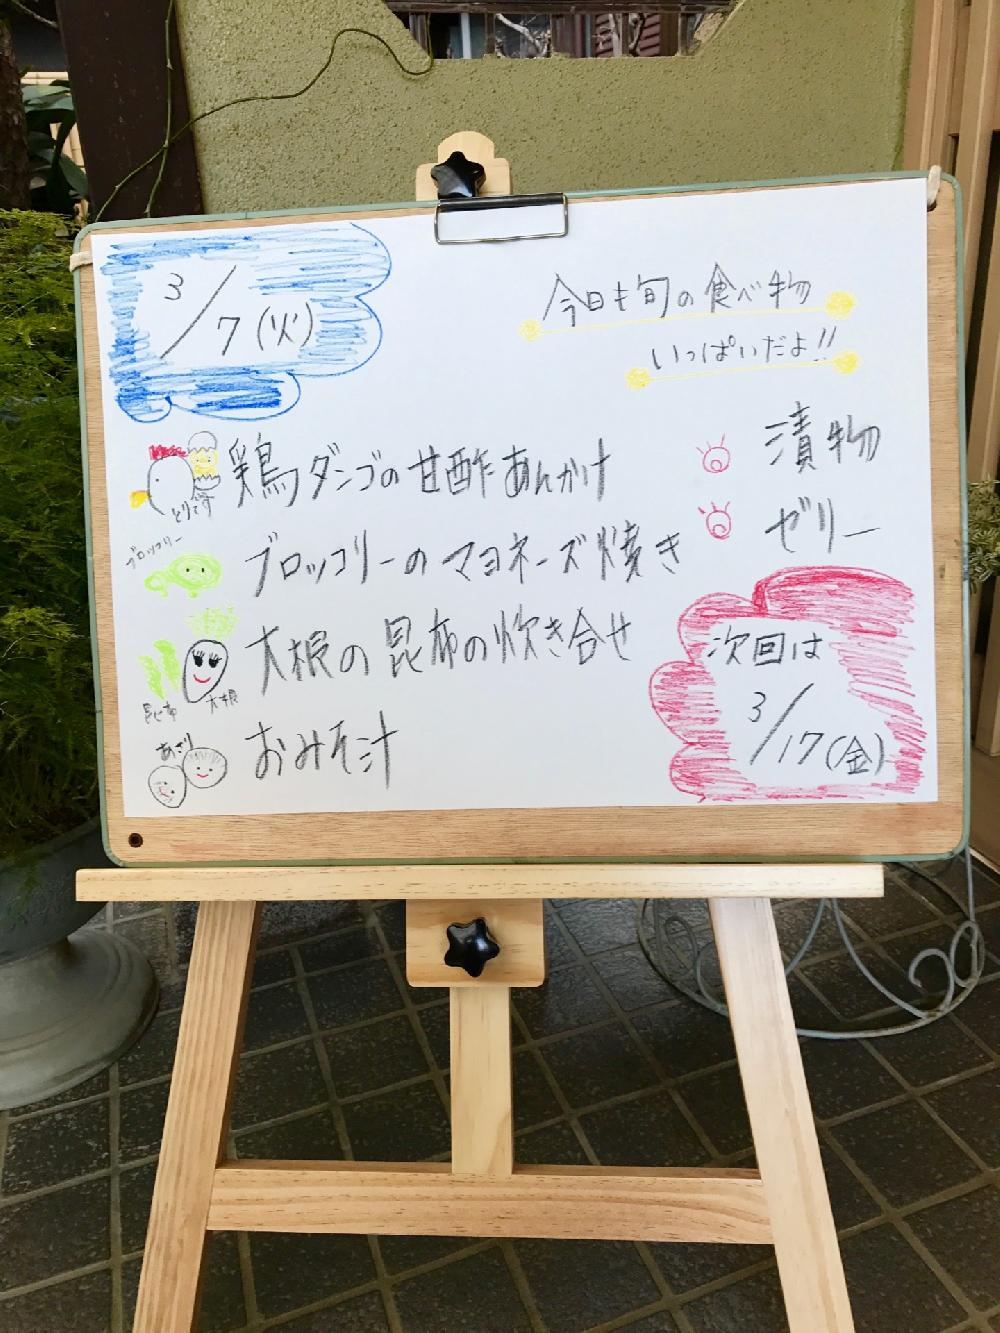 3/7(火)
今日も旬の食べ物
いっぱいだよ!!
とりです
鶏ダンゴの甘酢あんかけ
ブロッコリー
ブロッコリーのマヨネーズ焼き
昆布
大根
大根の昆布の炊き合せ
あさり
おみそ汁
漬物
ゼリー
次回は
3/17(金)